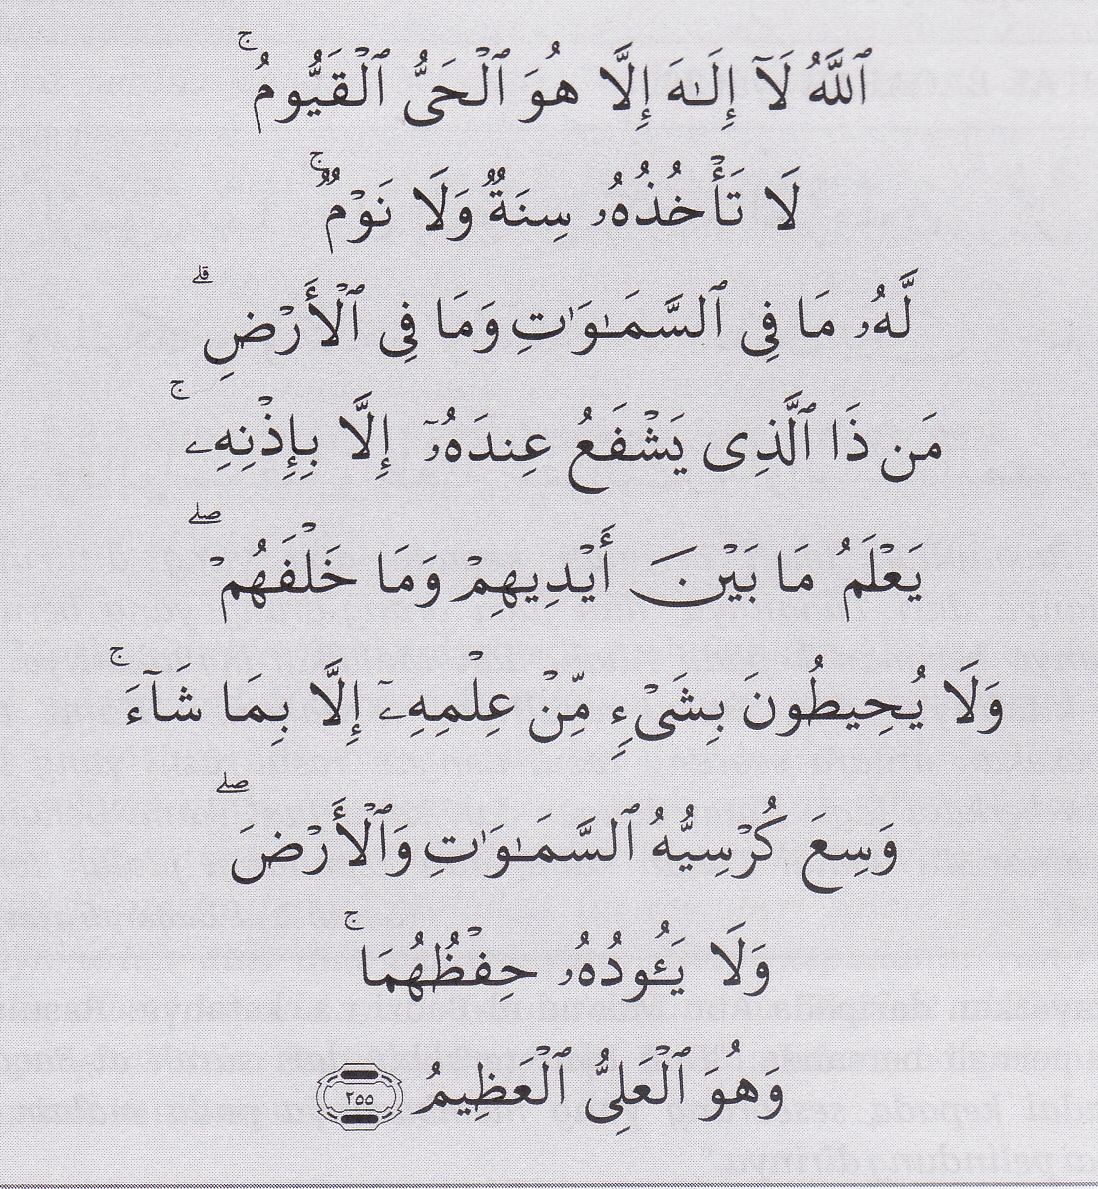 ٱللَّهُ لَآ إِلَـٰهَ إِلَّا هُوَ ٱلْحَىُّ ٱلْقَيُّومُ ۚ
لَا تَأْخُذُهُۥ سِنَةٌ وَلَا نَوْمٌ ۚ
لَّهُۥ مَا فِى ٱلسَّمَـٰوَٰتِ وَمَا فِى ٱلْأَرْضِ ۗ
مَن ذَا ٱلَّذِى يَشْفَعُ عِندَهُۥٓ إِلَّا بِإِذْنِهِۦ ۚ
يَعْلَمُ مَا بَيْنَ أَيْدِيهِمْ وَمَا خَلْفَهُمْ ۖ
وَلَا يُحِيطُونَ بِشَىْءٍ مِّنْ عِلْمِهِۦٓ إِلَّا بِمَا شَآءَ ۚ
وَسِعَ كُرْسِيُّهُ ٱلسَّمَـٰوَٰتِ وَٱلْأَرْضَ ۖ
وَلَا يَـُٔودُهُۥ حِفْظُهُمَا ۚ
وَهُوَ ٱلْعَلِىُّ ٱلْعَظِيمُ ٢٥٥